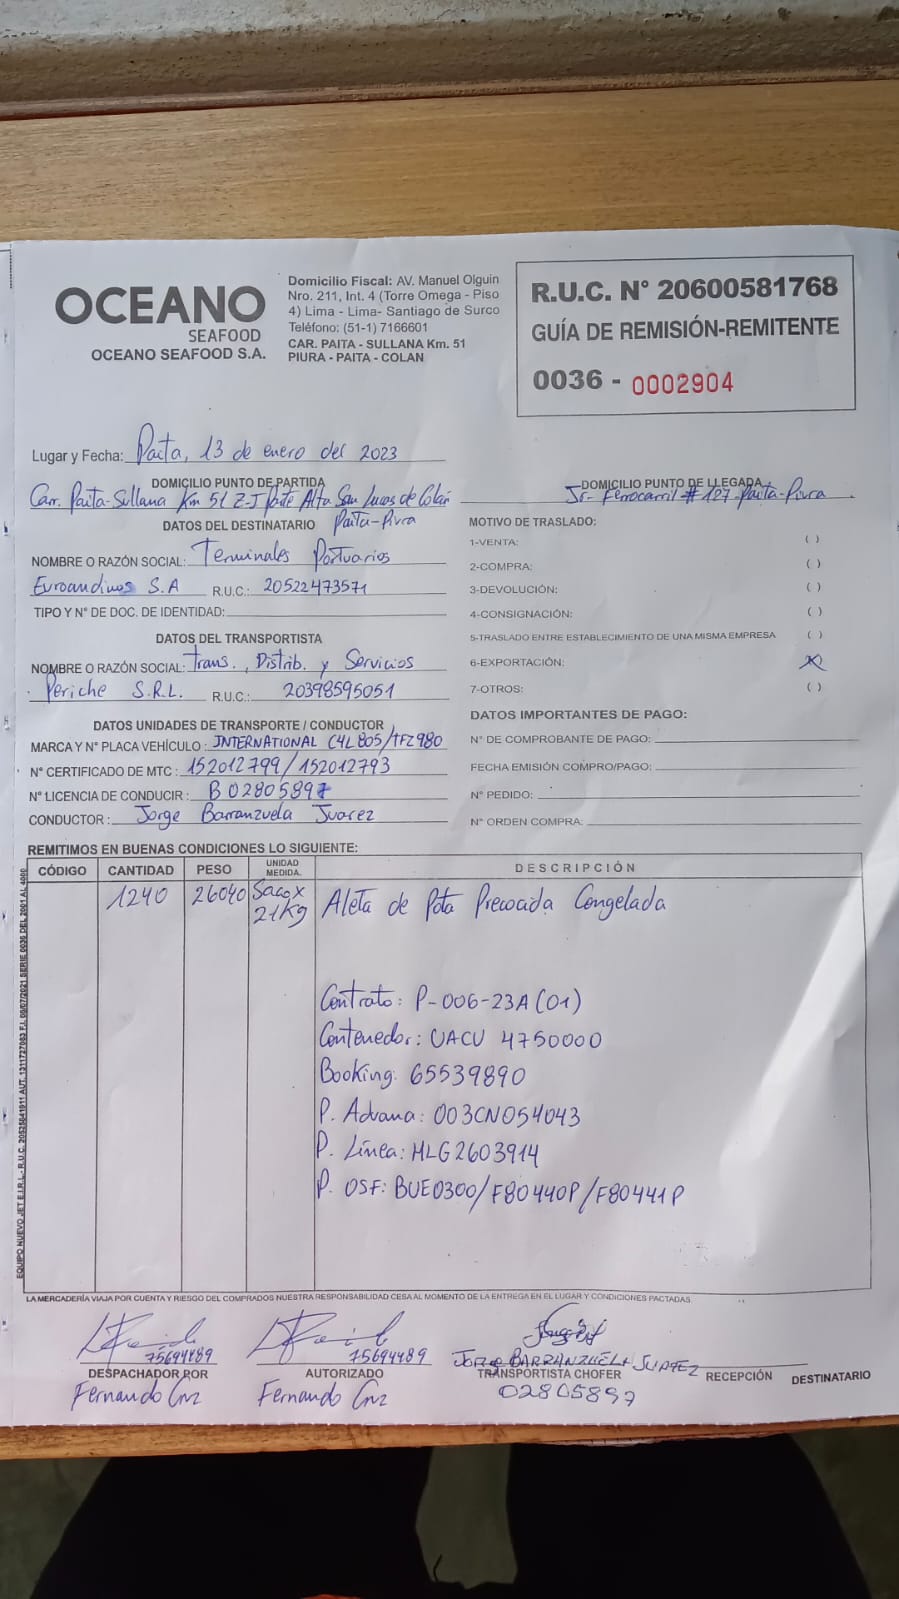 OCEANO
SEAFOOD
OCEANO SEAFOOD S.A.
Domicilio Fiscal: AV. Manuel Olguin
Nro. 211, Int. 4 (Torre Omega - Piso
4) Lima - Lima- Santiago de Surco
Teléfono: (51-1) 7166601
CAR. PAITA - SULLANA Km. 51
PIURA - PAITA - COLAN
R.U.C. N° 20600581768
GUÍA DE REMISIÓN-REMITENTE
0036 - 0002904
Lugar y Fecha: Paita, 13 de enero del 2023
DOMICILIO PUNTO DE PARTIDA
Carr. Paita-Sullana Km 51 Z-I Parte Alta San Lucas de Colán
Paita-Piura
DOMICILIO PUNTO DE LLEGADA
Jr- Ferrocarril # 127-Paita-Piura
DATOS DEL DESTINATARIO
NOMBRE O RAZÓN SOCIAL: Terminales Portuarios
Euroandinos S.A R.U.C.: 20522473571
TIPO Y N° DE DOC. DE IDENTIDAD:
DATOS DEL TRANSPORTISTA
NOMBRE O RAZÓN SOCIAL: Trans., Distrib. y Servicios
Periche S.R.L. R.U.C.: 20398595051
DATOS UNIDADES DE TRANSPORTE / CONDUCTOR
MARCA Y N° PLACA VEHÍCULO : INTERNATIONAL C4L 805/TFZ980
N° CERTIFICADO DE MTC : 152012799/152012793
N° LICENCIA DE CONDUCIR : B 02805897
CONDUCTOR : Jorge Barranzuela Juarez
MOTIVO DE TRASLADO:
1-VENTA: ( )
2-COMPRA: ( )
3-DEVOLUCIÓN: ( )
4-CONSIGNACIÓN: ( )
5-TRASLADO ENTRE ESTABLECIMIENTO DE UNA MISMA EMPRESA ( )
6-EXPORTACIÓN: (X)
7-OTROS: ( )
DATOS IMPORTANTES DE PAGO:
N° DE COMPROBANTE DE PAGO:
FECHA EMISIÓN COMPRO/PAGO:
N° PEDIDO:
N° ORDEN COMPRA:
REMITIMOS EN BUENAS CONDICIONES LO SIGUIENTE:
CÓDIGO CANTIDAD PESO UNIDAD MEDIDA. DESCRIPCIÓN
1240 26040 Saco x 21Kg Aleta de Pota Precocida Congelada
Contrato: P-006-23A (01)
Contenedor: UACU 4750000
Booking: 65539890
P. Aduana: 003CN054043
P. Línea: HLG2603914
P. OSF: BUE0300/F80440P/F80441P
EQUIPO NUEVO JET E.I.R.L.- R.U.C. 20525841911 AUT. 1311727063 F.I. 09/07/2021 SERIE 0036 DEL 2001 AL 4000
LA MERCADERÍA VIAJA POR CUENTA Y RIESGO DEL COMPRADOS NUESTRA RESPONSABILIDAD CESA AL MOMENTO DE LA ENTREGA EN EL LUGAR Y CONDICIONES PACTADAS.
75694489
DESPACHADOR POR
Fernando Cruz
75694489
AUTORIZADO
Fernando Cruz
Jorge BARRANZUELA JUAREZ
TRANSPORTISTA CHOFER
02805897
RECEPCIÓN
DESTINATARIO